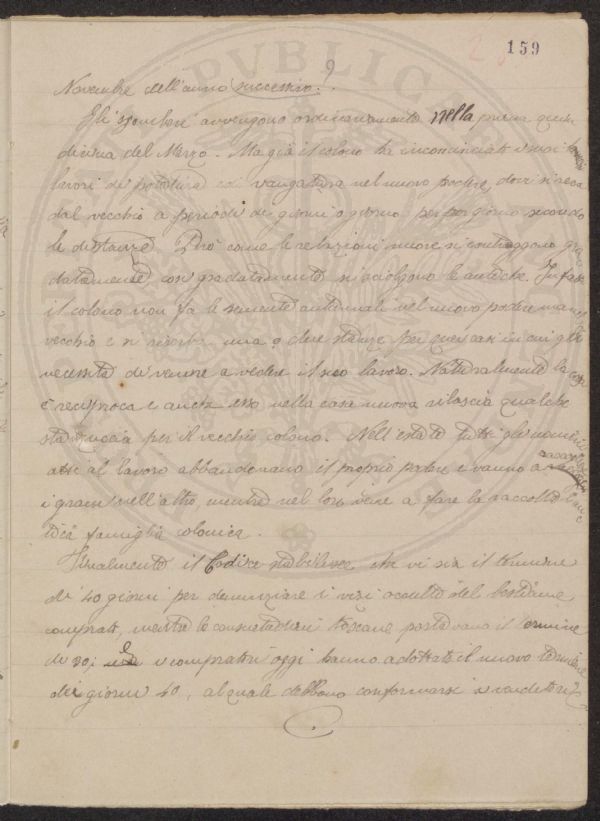 159
Novembre dell'anno successivo.
Gli sgomberi avvengono ordinariamente nella prima quin
dicina del Marzo. Ma già il colono ha incominciato i suoi
lavori di potatura e di vangatura nel nuovo podere, dove si reca
dal vecchio a periodi di giorni o giorno per giorno secondo
le distanze. Però come le relazioni nuove si contraggono gra
datamente, così gradatamente si sciolgono le antiche. Infatti
il colono non fa le semente autunnali nel nuovo podere ma nel
vecchio e si riserba una o due stanze per quei casi in cui gli è
necessità di venire a vedere il suo lavoro. Naturalmente la cosa
è reciproca e anche esso nella casa nuova rilascia qualche
stanzuccia per il vecchio colono. Nell'estate tutti gli uomini
atti al lavoro abbandonano il proprio podere e vanno a
i grani nell'altro, mentre nel loro viene a fare la raccolta l'an
tica famiglia colonica.
Finalmente il Codice stabilisce che vi sia il termine
di 40 giorni per denunziare i vizi occulti del bestiame
comprato, mentre le consuetudini toscane portavano il termine
di 20; i compratori oggi hanno adottato il nuovo termine
dei giorni 40, al quale debbono conformarsi i venditori.